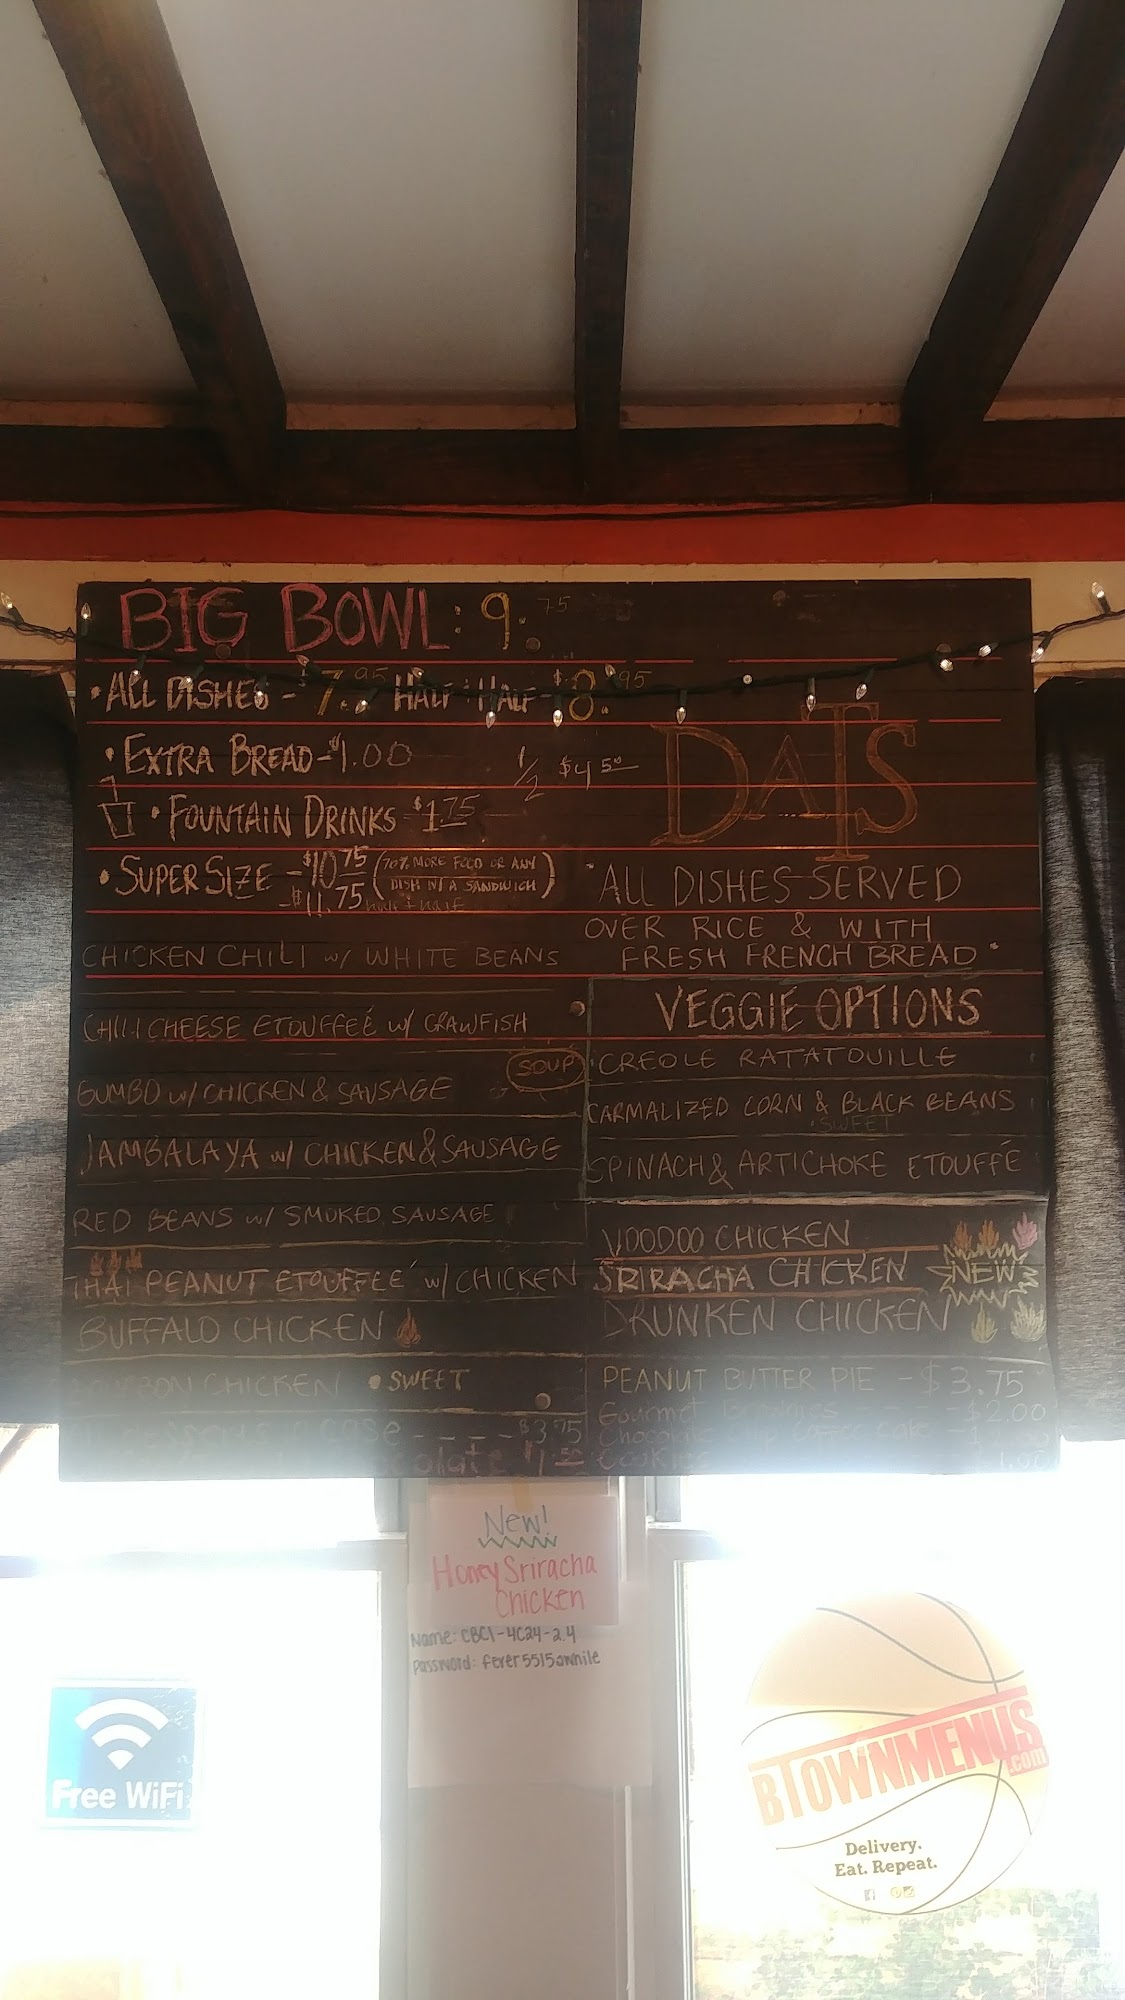 BIG BOWL: 9.75
• ALL DISHES - $7.95 HALF & HALF $8.95
• EXTRA BREAD - $1.00 1/2 $4.50
• FOUNTAIN DRINKS $1.75
• SUPER SIZE - $10.75 (70% MORE FOOD OR ANY
DISH W/ A SANDWICH)
- $11.75 half + half
CHICKEN CHILI w/ WHITE BEANS
CHILI CHEESE ETOUFFEÉ w/ CRAWFISH
SOUP
GUMBO w/ CHICKEN & SAUSAGE
JAMBALAYA w/ CHICKEN & SAUSAGE
RED BEANS w/ SMOKED SAUSAGE
THAI PEANUT ETOUFFEÉ w/ CHICKEN
BUFFALO CHICKEN
BOURBON CHICKEN • SWEET
$3.75
DATS
"ALL DISHES SERVED
OVER RICE & WITH
FRESH FRENCH BREAD"
VEGGIE OPTIONS
CREOLE RATATOUILLE
CARMALIZED CORN & BLACK BEANS
• SWEET
SPINACH & ARTICHOKE ETOUFFÉ
VOODOO CHICKEN
SRIRACHA CHICKEN NEW
DRUNKEN CHICKEN
PEANUT BUTTER PIE - $3.75
Gourmet Brownies $2.00
Chocolate Chip Coffee Cake
Cookies 1.00
New!
Honey Sriracha
Chicken
Name: CBCI-4C24-2.4
password: fever5515awhile
Free WiFi
BTOWNMENUS
.com
Delivery.
Eat. Repeat.